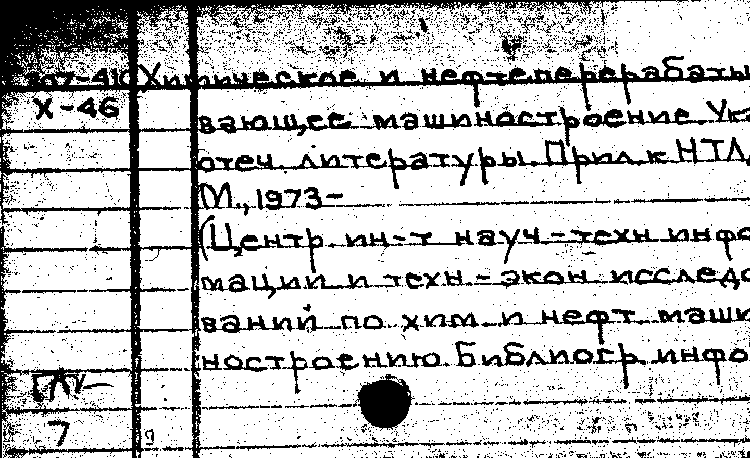 Химическое и нефтеперерабаты
Х-46
вающее машиностроение. Ука
отеч. литературы. Прил. к НТЛ.
М., 1973-
(Центр. ин-т науч.-техн. инфо
мации и техн.-экон. исследо
ваний по хим. и нефт. маши
ностроению. Библиогр. инфо
7